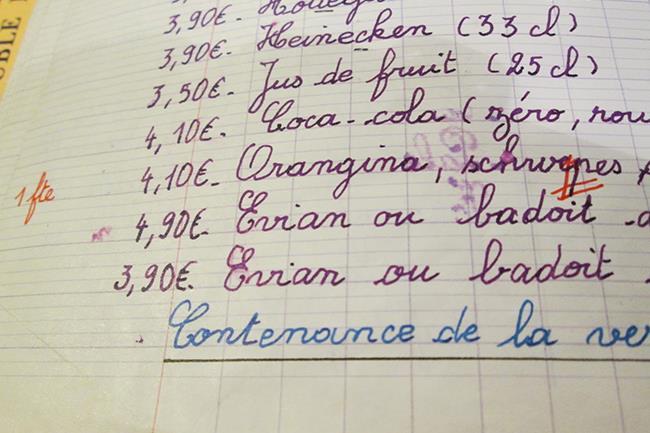 3,90€.
3,90€. Heinecken (33cl)
3,50€. Jus de fruit (25cl)
4,10€. Coca-cola (zéro, rou
4,10€. Orangina, schwepes,
1 fte
4,90€. Evian ou badoit
3,90€. Evian ou badoit
Contenance de la ve